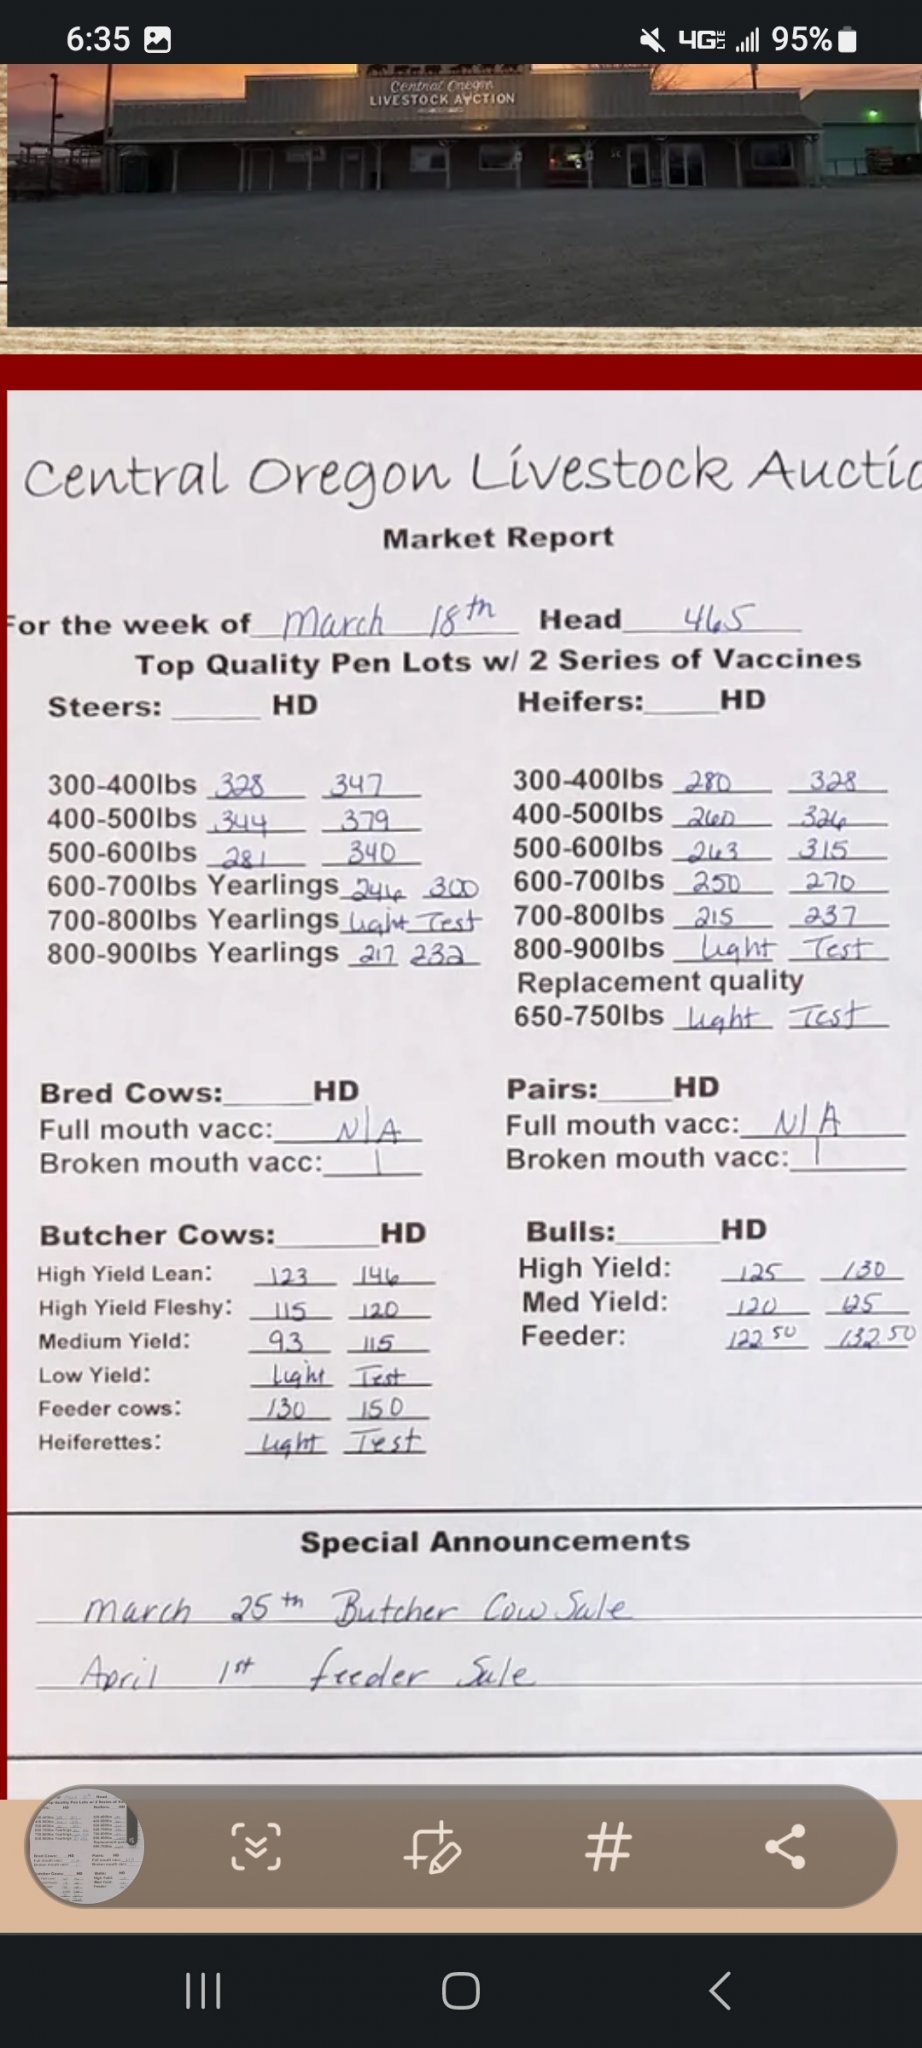 6:35 4G LTE 95%
Central Oregon
LIVESTOCK AUCTION
Central Oregon Livestock Auctio
Market Report
For the week of March 18th Head 465
Top Quality Pen Lots w/ 2 Series of Vaccines
Steers: ______ HD Heifers: ______ HD
300-400lbs 328 347 300-400lbs 280 328
400-500lbs 344 379 400-500lbs 260 326
500-600lbs 281 340 500-600lbs 263 315
600-700lbs Yearlings 246 300 600-700lbs 250 270
700-800lbs Yearlings Light Test 700-800lbs 215 237
800-900lbs Yearlings 217 232 800-900lbs Light Test
Replacement quality
650-750lbs Light Test
Bred Cows: ______ HD Pairs: ______ HD
Full mouth vacc: N/A Full mouth vacc: N/A
Broken mouth vacc: | Broken mouth vacc: |
Butcher Cows: ______ HD Bulls: ______ HD
High Yield Lean: 123 146 High Yield: 125 130
High Yield Fleshy: 115 120 Med Yield: 120 125
Medium Yield: 93 115 Feeder: 122.50 132.50
Low Yield: Light Test
Feeder cows: 130 150
Heiferettes: Light Test
Special Announcements
March 25th Butcher Cow Sale
April 1st feeder Sale